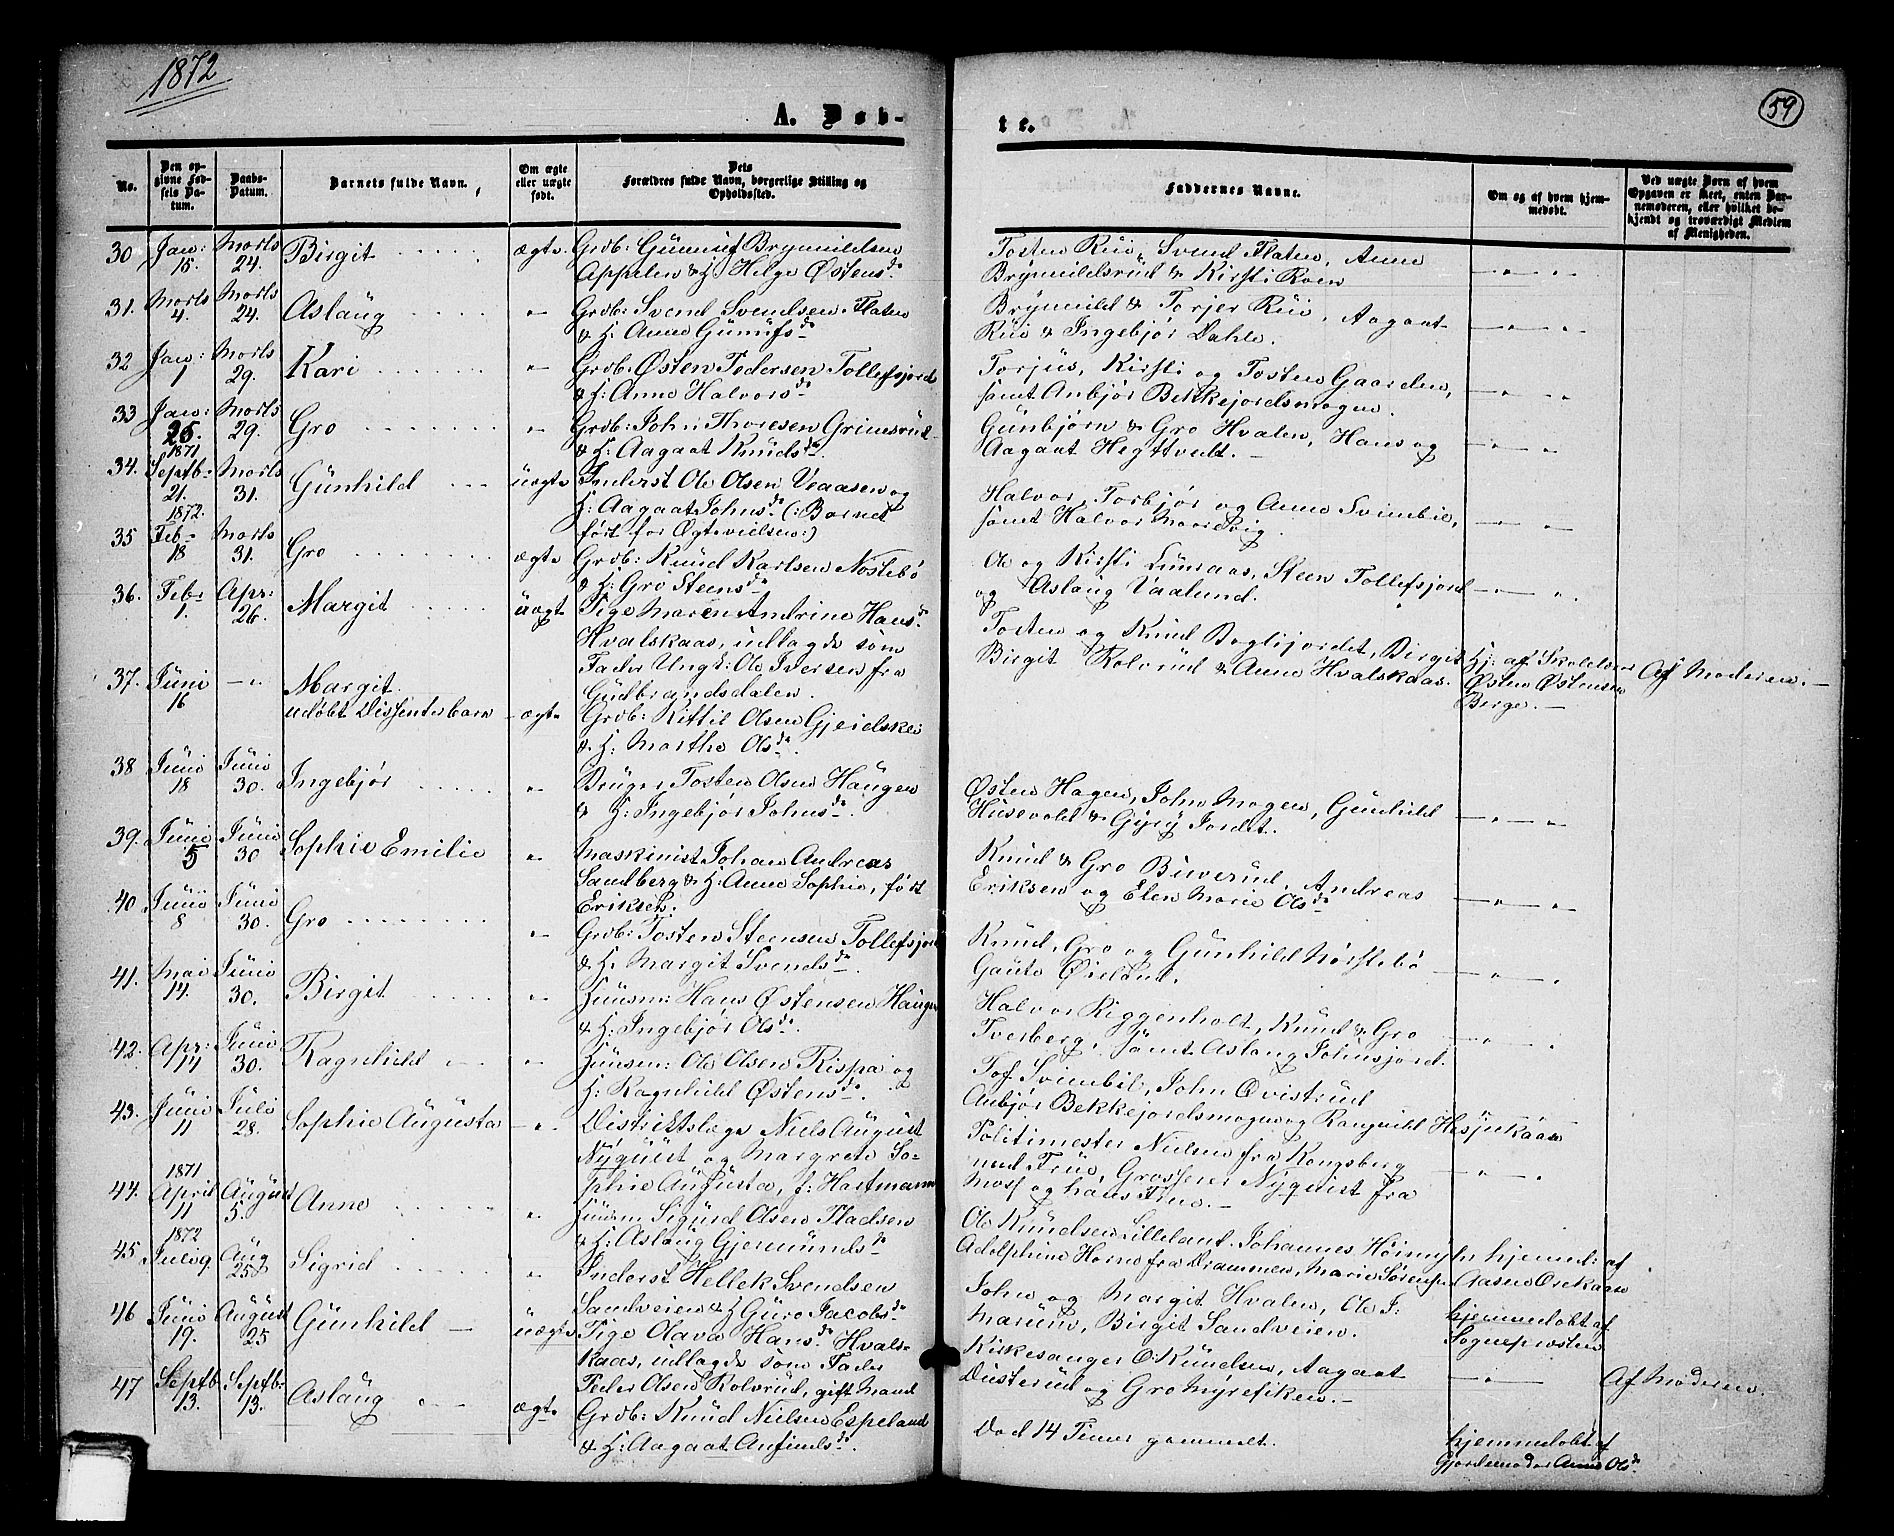 1872
59
A. Døb-
te.
No.
Den op-
givne Fød-
sels Da-
tum.
Daabs-
Datum.
Barnets fulde Navn.
Om ægte
eller uægte
født.
Dets
Forældres fulde Navn, borgerlige Stilling og
Opholdssted.
Faddernes Navne.
Om og af hvem hjem-
medøbt.
Ved uægte Børn af hvem
Opgaven er skeet, enten Bar-
nemoderen, eller hvilket be-
kjendt og troværdigt Medlem
af Menigheden.
30 Jan: 15. Marts 24. Birgit ægte Grdb: Gunnuf Brynnildsen
Appelen & H. Helge Østensd.
Tosten Rui, Svend Flaten, Anne
Brynnildsrud & Kirsti Roen
31. Marts 4. Marts 24. Aslaug " Grdb: Svend Svendsen Flaten
& H. Anne Gunnufsd.
Brynnild & Torjer Rui, Aagaat
Rui & Ingebjør Dahle.
32 Jan: 1 Marts 29. Kari " Grdb: Østen Pedersen Tollefsjord
& H: Anne Halvorsd.
Torjus, Kirsti og Tosten Gaarden,
samt Anbjør Bekkejordsmogen.
33 Jan: 25. Marts 29. Gro " Grdb: John Thoresen Grimsrud
& H. Aagaat Knudsd.
Gunbjørn & Gro Hvalen, Hans og
Aagaat Hegttvedt.
34. 1871 Septb: 21. Marts 31. Gunhild uægte Inderst Ole Olsen Veaasen og
H: Aagaat Johnsd. (: Barnet
født før Ægtevielsen:)
Halvor, Torbjør og Anne Svimbil,
samt Halvor Moen Vig.
35 1872. Feb. 18 Marts 31. Gro ægte Grdb: Knud Karlsen Nostebø
& H: Gro Steensd.
Ole og Kirsti Lunaas, Steen Tollefsjord
og Aslaug Vaalund.
36. Feb: 1. Apr: 26. Margit uægt Pige Maren Andrine Hansd.
Hvalskaas, udlagde som
Fader Ungk: Ole Iversen fra
Gudbrandsdalen.
Tosten og Knud Boglijordet, Birgit
Birgit Rolvrud & Anne Hvalskaas.
Hj: af Skolelærer
Østen Østensen
Berge.
Af Moderen.
37. Juni 16 Margit
udøbt Dissenterbarn ægte Grdb: Kittil Olsen Gjeidske
& H: Marthe Olsd.
38 Juni 18 Juni 30. Ingebjør " Bruger Tosten Olsen Haugen
& H: Ingebjør Johnsd.
Østen Hagen, John Mogen, Gunhild
Husevold & Gyry Jordet.
39. Juni 5 Juni 30 Sophie Emilie " Maskinist Johan Andreas
Sandberg & H: Anne Sophie, født
Eriksen.
Knud & Gro Buverud, Andreas
Eriksen og Elen Marie Olsd.
40 Juni 8 Juni 30. Gro " Grdb: Tosten Steensen Tollefsjord
& H. Margit Svendsd.
Knud, Gro og Gunhild Nørstebø
Gaute Øieland.
41. Mai 14. Juni 30. Birgit " Huusm: Hans Østensen Haugen
& H: Ingebjør Olsd.
Halvor Riggenholt, Knud & Gro
Tverberg, samt Aslaug Johnsjord.
42. Apr: 14 Juni 30. Ragnhild " Huusm: Ole Olsen Rispa og
H: Ragnhild Østensd.
Tof Svimbil, John Qvistrud
Anbjør Bekkejordsmogen og Rangnild Hesjukaas
43. Juni 11 Juli 28. Sophie Augusta " Distriktslæge Niels August
Nyquist og Margrete So-
phie Augusta, f: Hartmann
Politimester Nielsen fra Kongsberg
med Frue, Grosserer Nyquist fra
Moss og hans Frue.
44. 1871 April 11 August 5. Anne " Huusm Sigurd Olsen Fladsen
& H: Aslaug Gjermundsd.
Ole Knudsen Lilleland, Johannes Høimyr
Adolphine Horne fra Drammen, Marie Sørensen
hjemd: af
Aasne Ørekaas
45 1872 Juli 9 Aug 25 Sigrid " Inderst Hellek Svendsen
Sandveien & H Guro Jacobsd.
John og Margit Hvalen, Ole J:
Marum, Birgit Sandveien.
hjemmedøbt af
Sogneprosten
46 Juni 19. August 25 Gunhild uægte Pige Olava Hansd. Hvals-
kaas, udlagde som Fader
Peder Olsen Rolvrud, gift Mand
Kirkesanger O: Knudsen, Aagaat
Dusterud og Gro Myrefiken.
Af Moderen.
47 Septb 13. Septb: 13. Aslaug ægte Grdb: Knud Nielsen Espeland
& H: Aagaat Anfindsd.
Død 14 Timer gammelt.
hjemmedøbt af
Gjordemoder Anne Olsd.